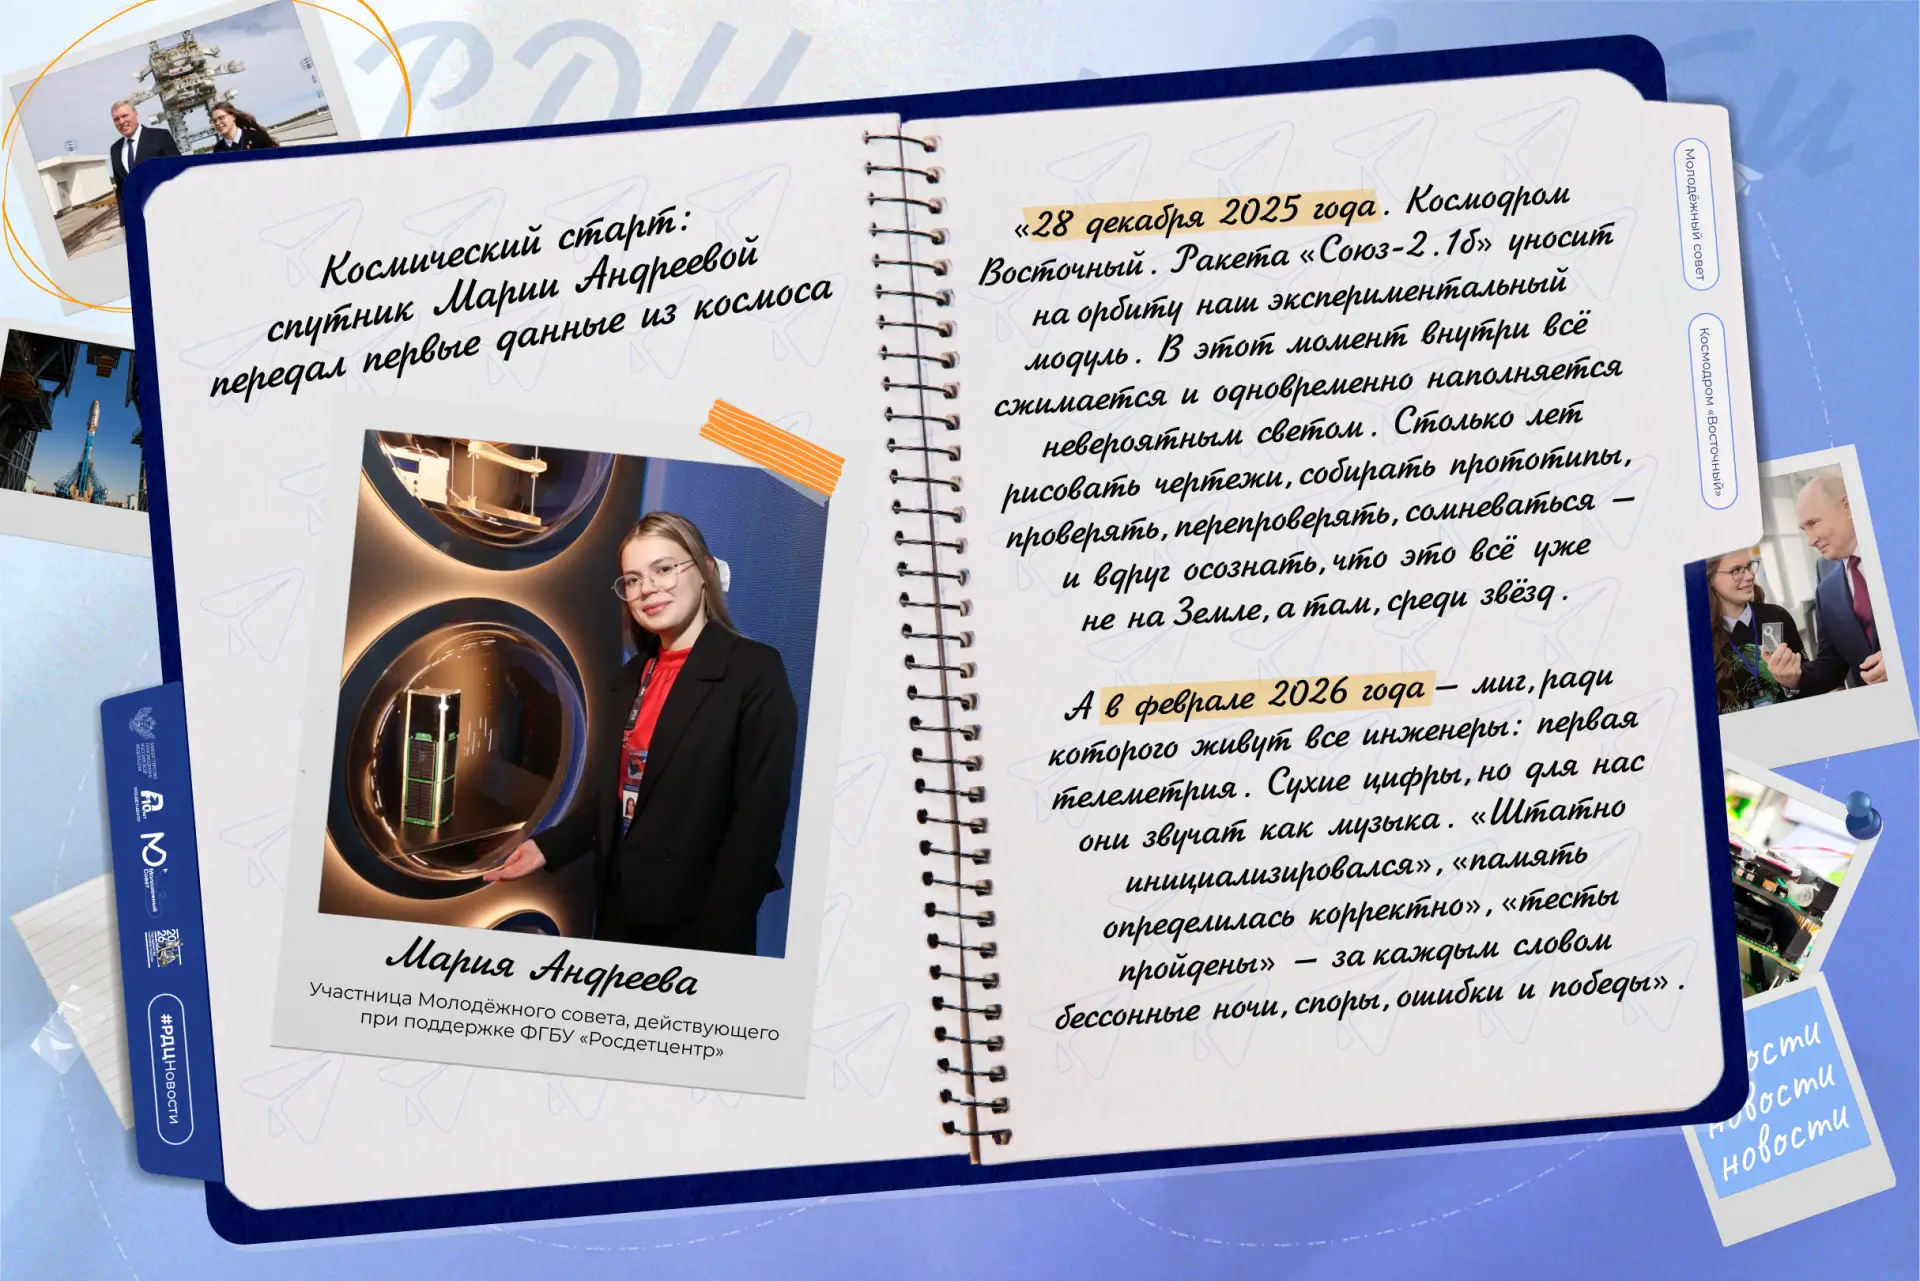 РДЦ
Космический старт:
спутник Марии Андреевой
передал первые данные из космоса
Мария Андреева
Участница Молодёжного совета, действующего
при поддержке ФГБУ «Росдетцентр»
#РДЦНОВОСТИ
«28 декабря 2025 года. Космодром
Восточный. Ракета «Союз-2.1б» уносит
на орбиту наш экспериментальный
модуль. В этот момент внутри всё
сжимается и одновременно наполняется
невероятным светом. Столько лет
рисовать чертежи, собирать прототипы,
проверять, перепроверять, сомневаться —
и вдруг осознать, что это всё уже
не на Земле, а там, среди звёзд.
А в феврале 2026 года — миг, ради
которого живут все инженеры: первая
телеметрия. Сухие цифры, но для нас
они звучат как музыка. «Штатно
инициализировался», «память
определилась корректно», «тесты
пройдены» — за каждым словом
бессонные ночи, споры, ошибки и победы».
Молодёжный совет
Космодром «Восточный»
новости